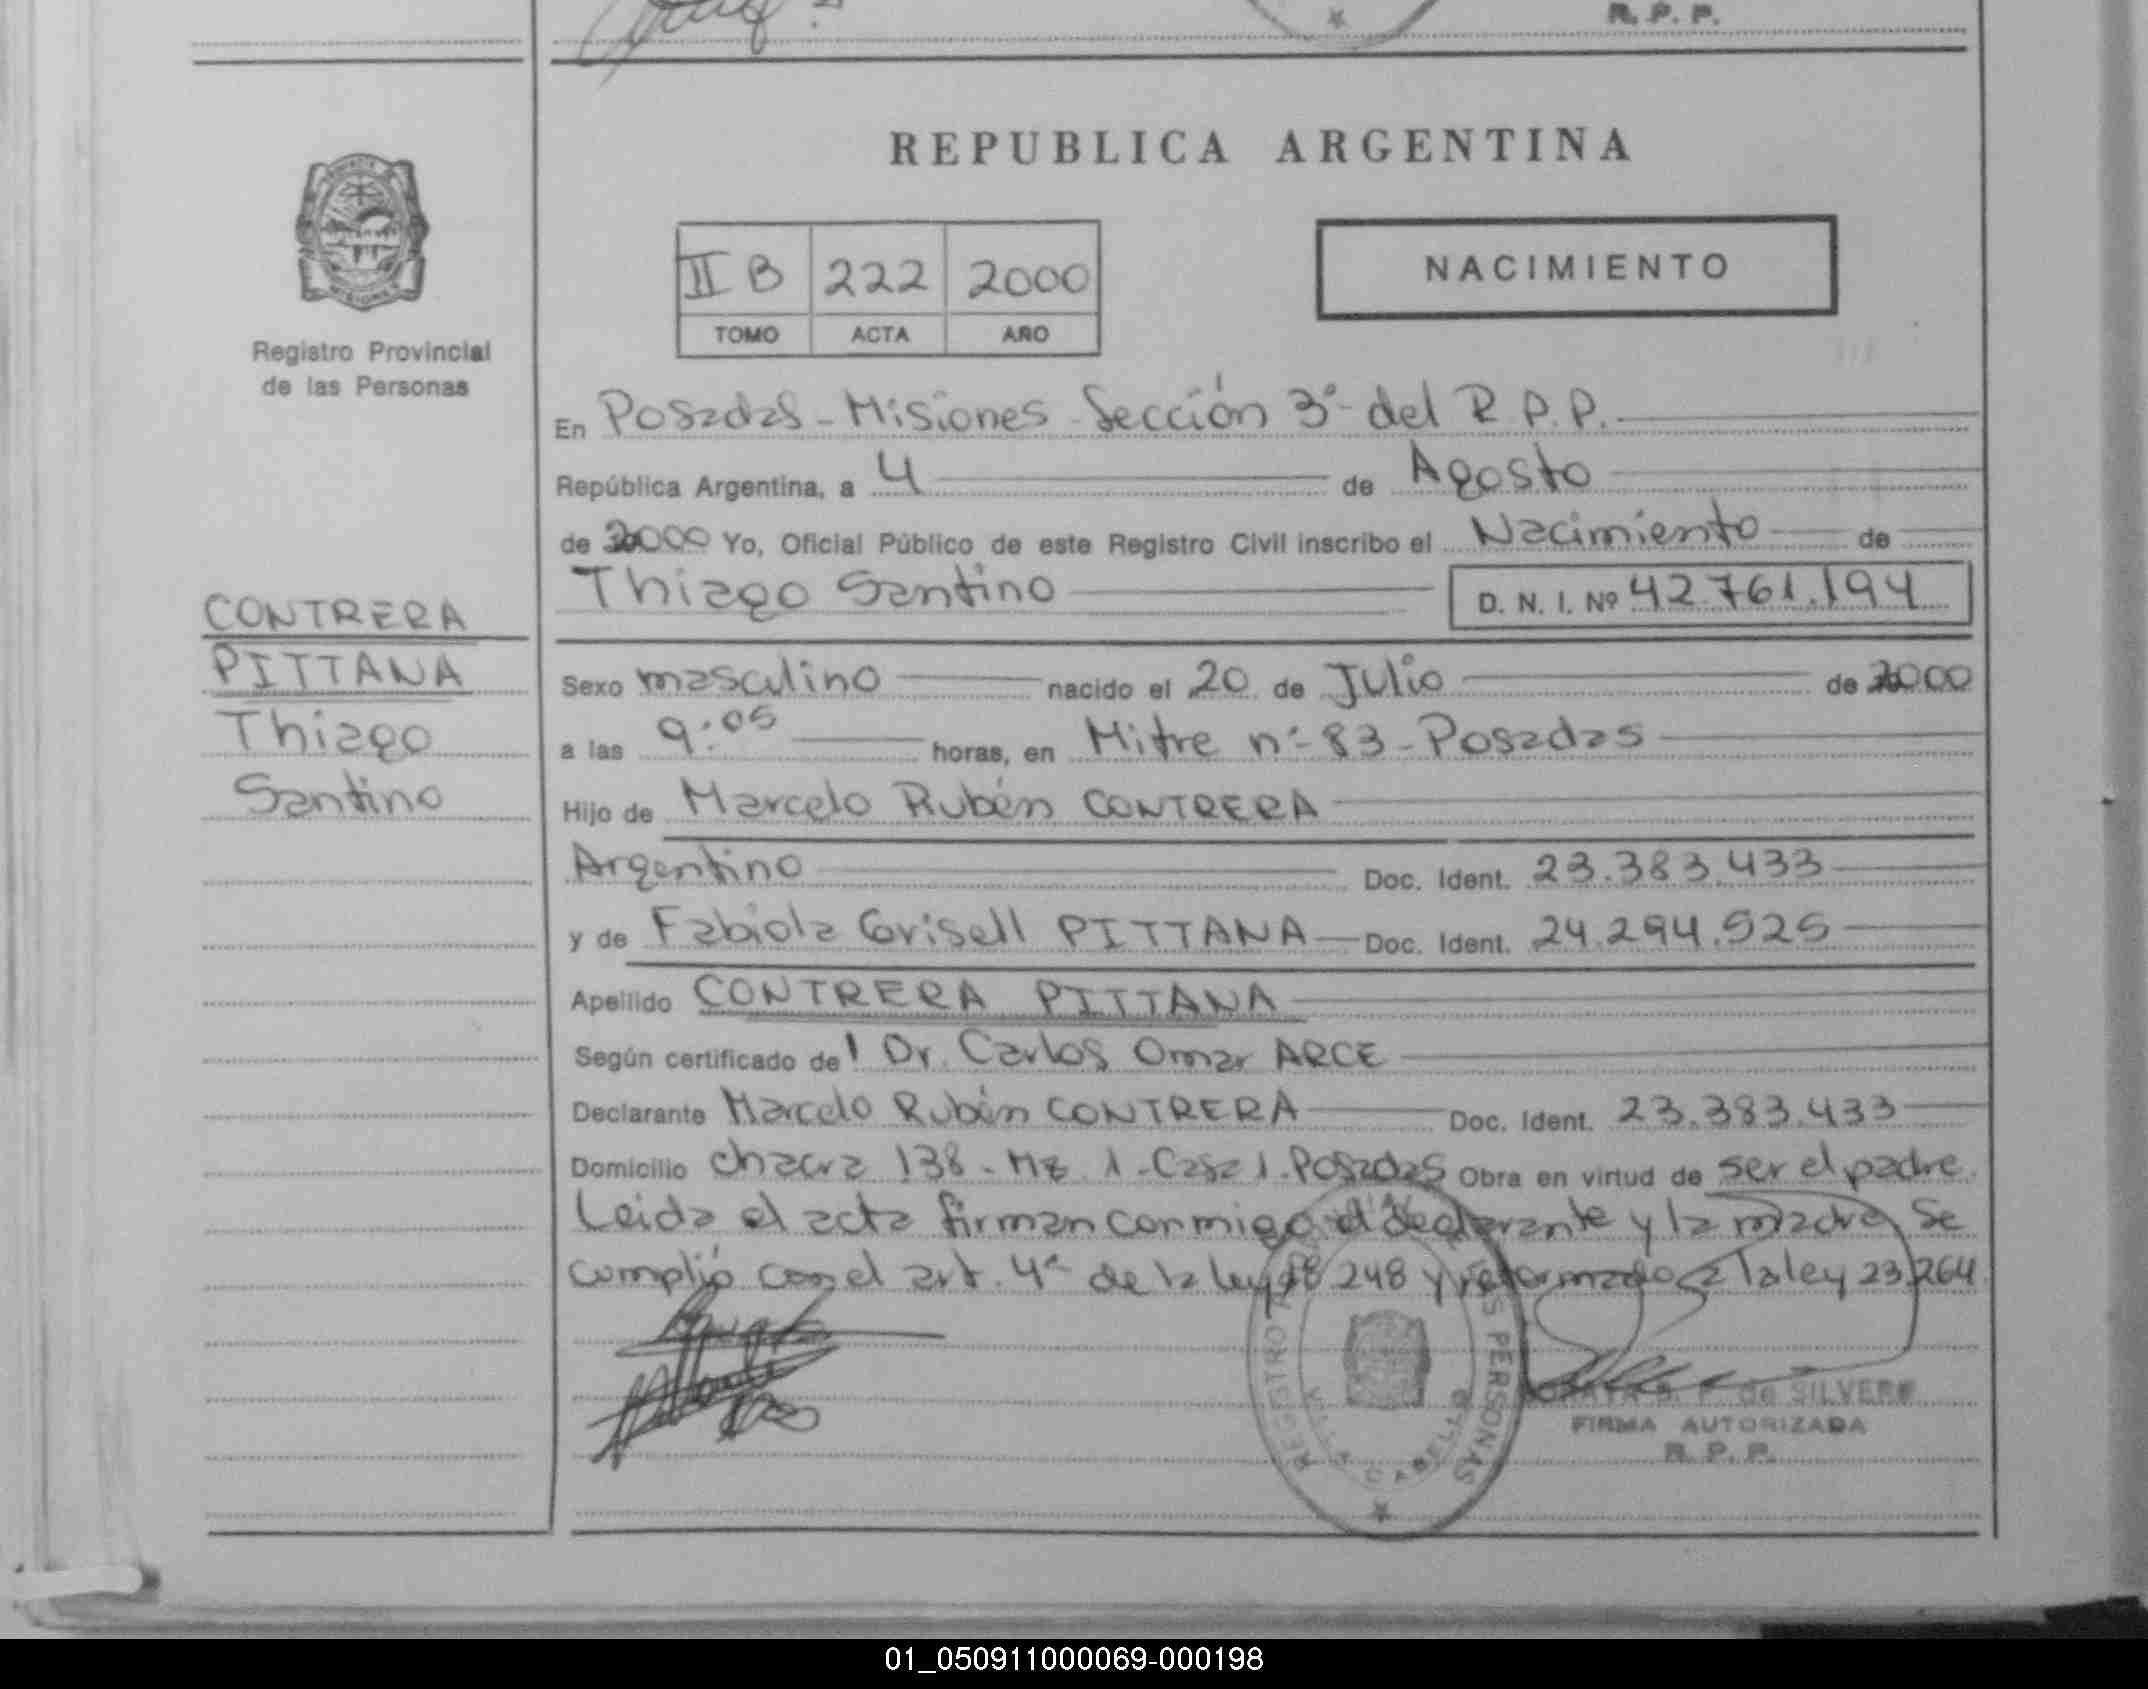 R. P. P.
REPUBLICA ARGENTINA
MISIONES
Registro Provincial
de las Personas
II B 222 2000
TOMO ACTA AÑO
NACIMIENTO
En Posadas - Misiones - Sección 3ª del R.P.P.
República Argentina, a 4 de Agosto
de 2000 Yo, Oficial Público de este Registro Civil inscribo el Nacimiento de
Thiago Santino D. N. I. Nº 42.761.194
CONTRERA
PITTANA
Thiago
Santino
Sexo masculino nacido el 20 de Julio de 2000
a las 9:05 horas, en Mitre nº 83 - Posadas
Hijo de Marcelo Rubén CONTRERA
Argentino Doc. Ident. 23.383.433
y de Fabiola Grisell PITTANA Doc. Ident. 24.294.525
Apellido CONTRERA PITTANA
Según certificado del Dr. Carlos Omar ARCE
Declarante Marcelo Rubén CONTRERA Doc. Ident. 23.383.433
Domicilio chacra 138 - Mz. 1 - Casa 1 - Posadas Obra en virtud de ser el padre.
Leida el acta firman conmigo el declarante y la madre, Se
cumplió con el art. 4º de la ley 18.248 y reformado a la ley 23.264
REGISTRO PERSONAS
VILLA CABELLO
de SILVERE
FIRMA AUTORIZADA
R. P. P.
01_050911000069-000198